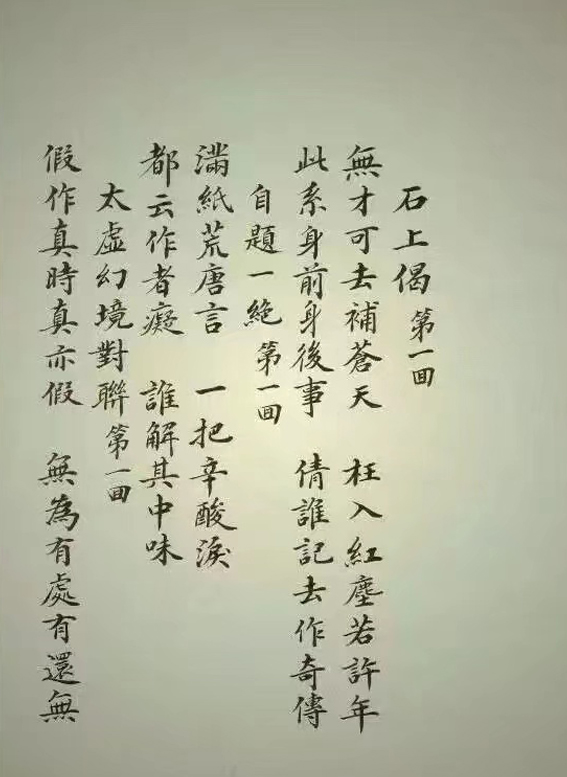 石上偈 第一回
無才可去補蒼天 枉入紅塵若許年
此系身前身後事 倩誰記去作奇傳
自題一絕 第一回
滿紙荒唐言 一把辛酸淚
都云作者癡 誰解其中味
太虛幻境對聯 第一回
假作真時真亦假 無為有處有還無